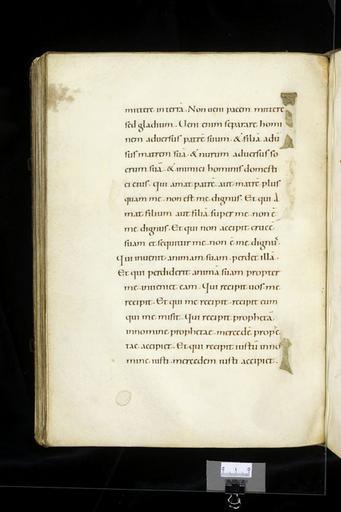 mittere in terrā. Non veni pacem mittere
sed gladium. Veni enim separare homi
nem adversus patrē suum. & filiā adu
sus matrem suā. & nurum adversus so
crum suā. & inimici hominis domesti
ci eius. Qui amat patrē aut matrē plus
quam me. non est me dignus. Et qui a
mat filium aut filiā super me. non ē
me dignus. Et qui non accipit crucē
suam et sequitur me. non ē me dignus.
Qui invenit animam suam. perdet illā.
Et qui perdiderit animā suam propter
me inveniet eam. Qui recipit vos me
recipit. Et qui me recipit. recipit eum
qui me misit. Qui recipit prophetā.
in nomine prophetae. mercedē prophe
tae accipiet. Et qui recipit iustū in no
mine iusti. mercedem iusti accipiet.